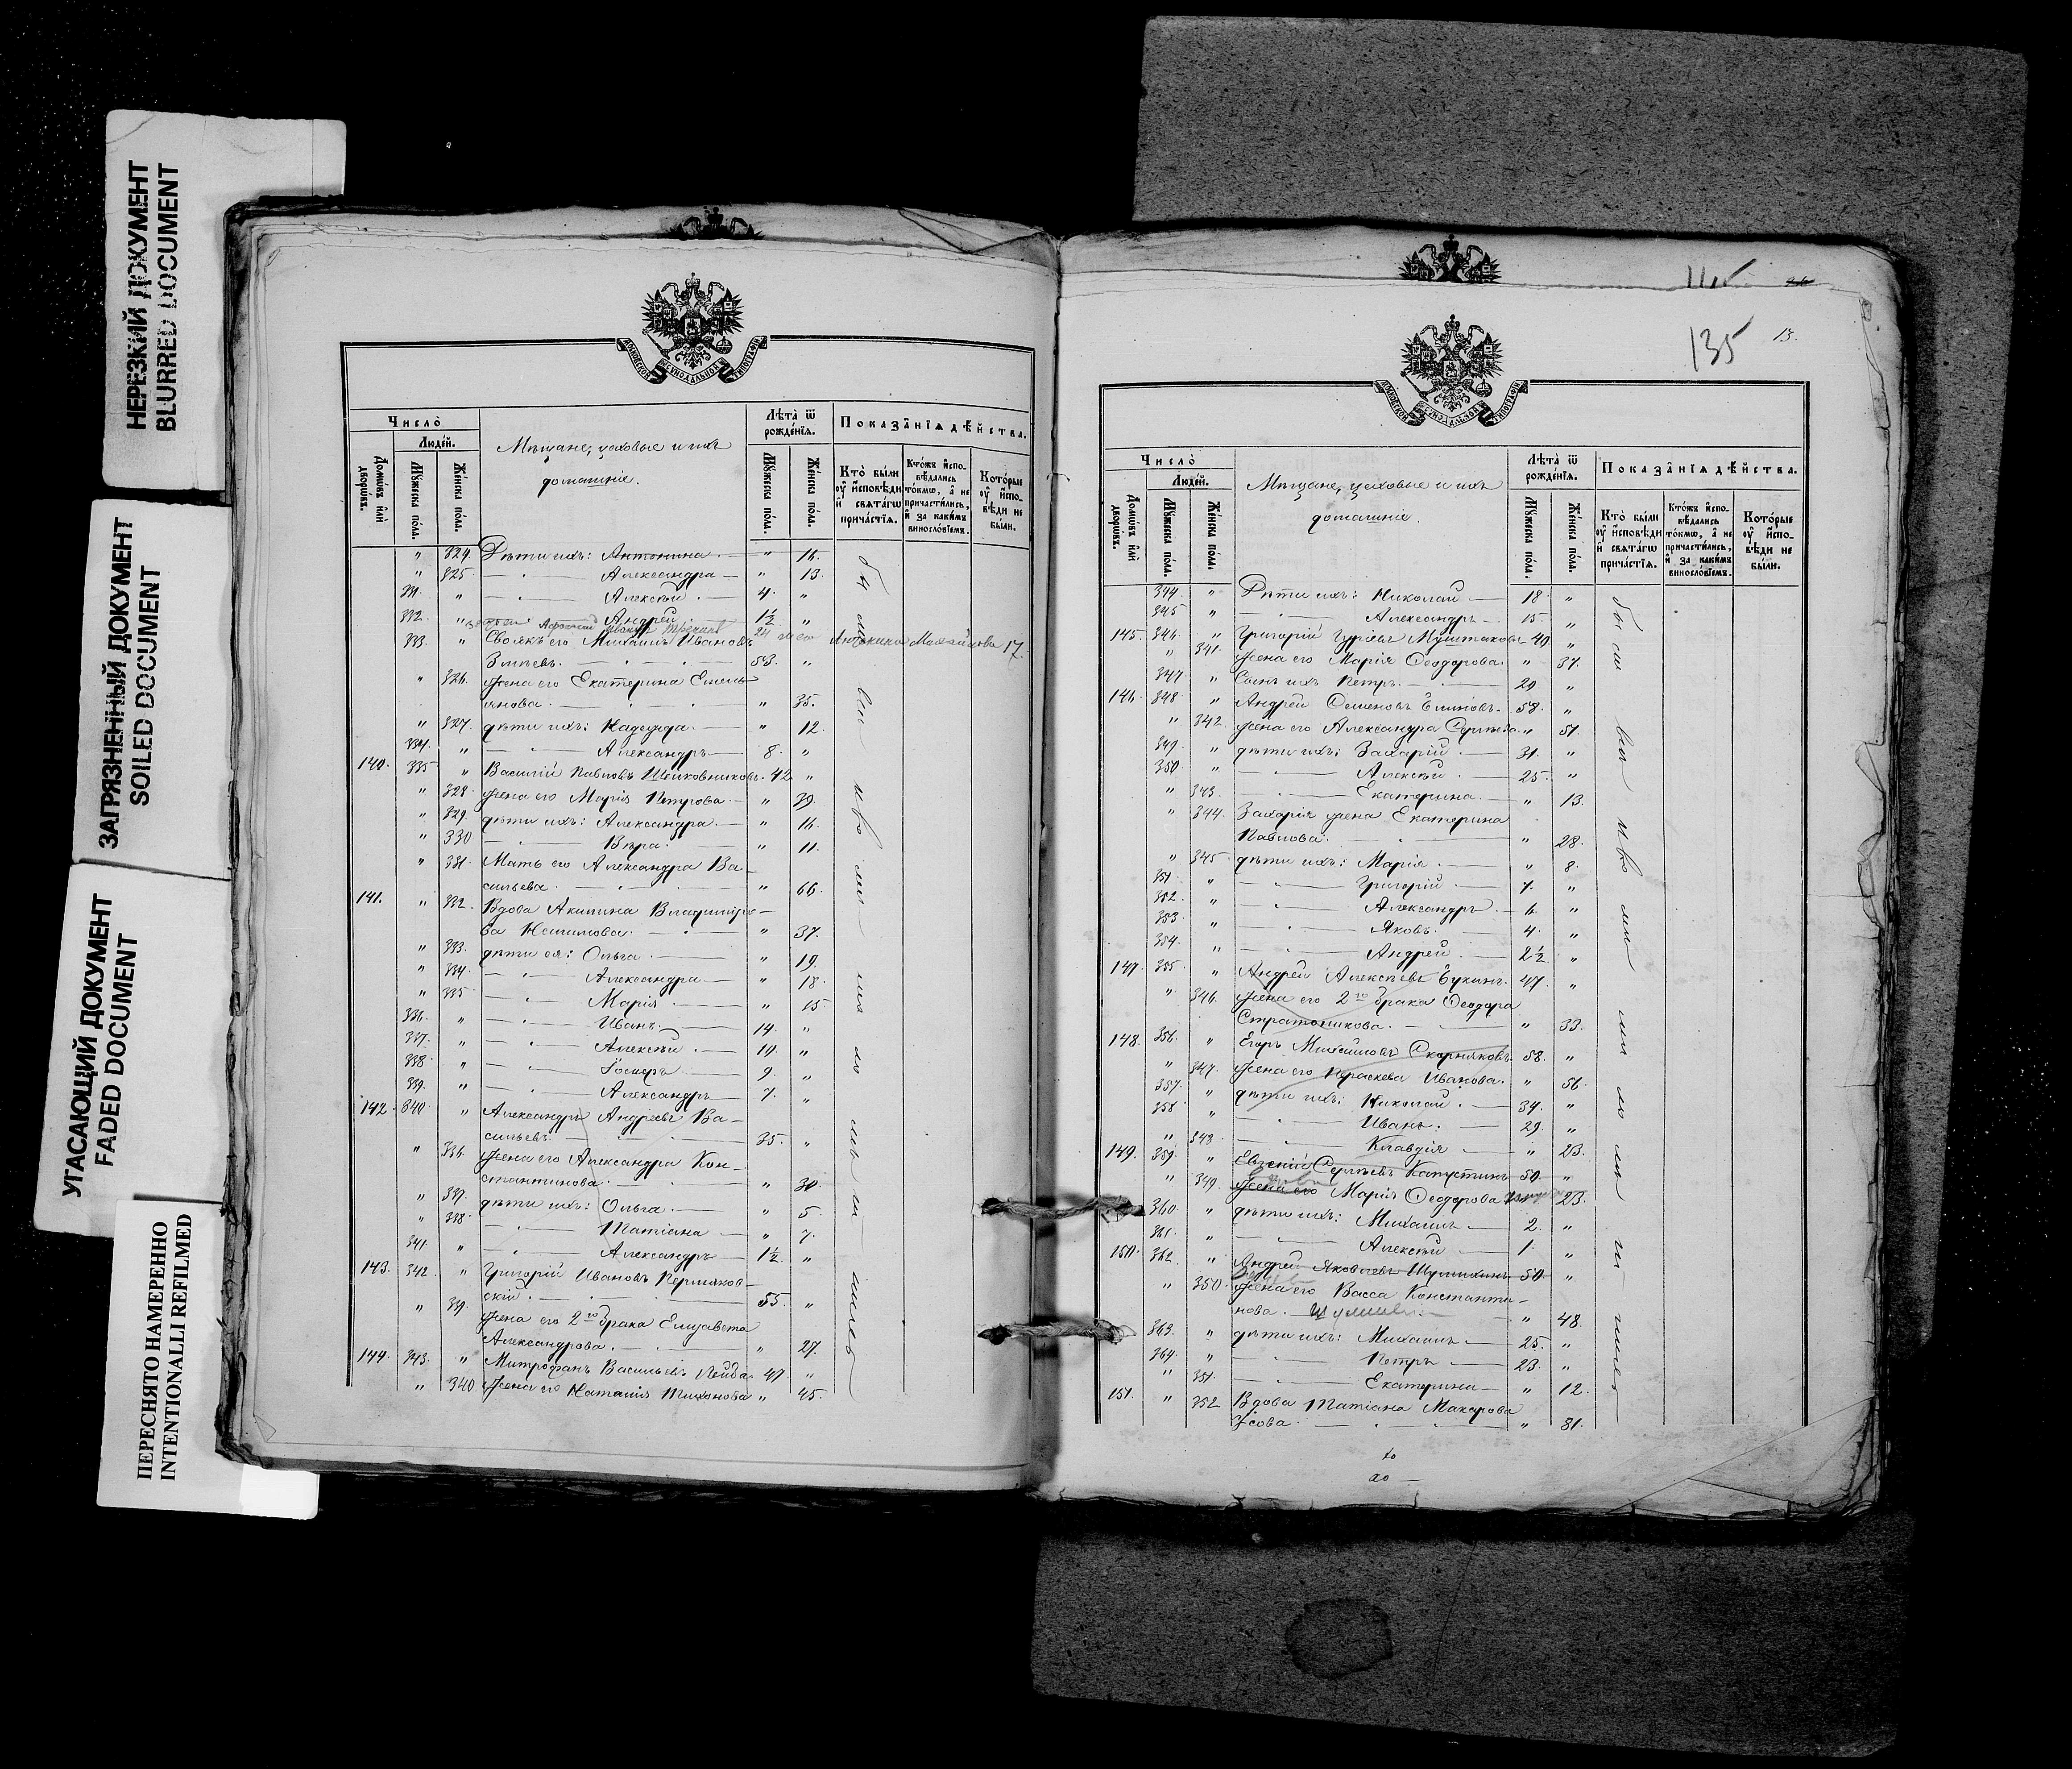 НЕРЕЗКИЙ ДОКУМЕНТ
BLURRED DOCUMENT
ЗАГРЯЗНЕННЫЙ ДОКУМЕНТ
SOILED DOCUMENT
УГАСАЮЩИЙ ДОКУМЕНТ
FADED DOCUMENT
ПЕРЕСНЯТО НАМЕРЕННО
INTENTIONALLI REFILMED
МОСКОВСКОЙ СѴНОДАЛЬНОЙ ТИПОГРАФІИ
Число̀
Людéй.
Домѡ́въ и҆лѝ дворѡ́въ.
Мꙋ́жеска по́ла.
Же́нска по́ла.
Мѣщане, цеховые и ихъ
домашніе.
Лѣ́та ѿ рожде́нїѧ.
Мꙋ́жеска по́ла.
Же́нска по́ла.
Показа̑нїѧ дѣ́йства.
Кто̀ бы́ли оу҆ и҆сповѣ́ди и҆ свѧта́гѡ прича́стїѧ.
Кто́жъ и҆спо-вѣ́дались то́кмѡ, а҆ не причасти́лись, и҆ за каки́мъ винослові́емъ.
Кото́рые оу҆ и҆спо-вѣ́ди не бы́ли.
" 324. Дѣти ихъ: Антонина — " 16.
" 325 — " — Александра — " 13.
331. " — " — Алексѣй — 4. "
332. " Андрей 1½ "
333. " Своякъ его Михаилъ Ивановъ Антонина Михайлова 17
Зыревъ. — 53. "
" 326. Жена его Екатерина Емель
янова. — " 35.
" 327. дѣти ихъ: Надежда. — " 12.
334. " — " — Александръ — 8. "
140. 335 " Василій Павловъ Шелковниковъ. 42 "
" 328 Жена его Марія Петрова. — " 39.
" 329. дѣти ихъ: Александра. — " 16.
" 330 — " — Вѣра. — " 11.
" 331. Мать его Александра Ва—
сильева. — " 66.
141. " 332. Вдова Акилина Владиміро—
ва — " 37.
" 333. дѣти ея: Ольга. — " 19.
" 334. — " — Александра. — " 18.
" 335 — " — Марія. — " 15
336. " — " — Иванъ. — 14. "
337. " — " — Алексѣй. — 10. "
338 " — " — Іосифъ — 9. "
339. " — " — Александръ — 7. "
142. 340. " Александръ Андреевъ Ва—
сильевъ. — 35. "
" 336. Жена его Александра Кон—
стантинова. — " 30.
" 337. дѣти ихъ: Ольга. — " 5.
" 338 — " — Татіана — " 7.
341. " — " — Александръ — 1½ "
143. 342. " Григорій Ивановъ Пермяков—
скій. — 55. "
" 339. Жена его 2го брака Елизавета
Александрова. — " 27.
144. 343. " Митрофанъ Васильевъ 47. "
" 340 Жена его Наталія Тихонова " 45.
были во всѣ
115
135 13.
МОСКОВСКОЙ СѴНОДАЛЬНОЙ ТИПОГРАФІИ
Число̀
Людéй.
Домѡ́въ и҆лѝ дворѡ́въ.
Мꙋ́жеска по́ла.
Же́нска по́ла.
Мѣщане, цеховые и ихъ
домашніе.
Лѣ́та ѿ рожде́нїѧ.
Мꙋ́жеска по́ла.
Же́нска по́ла.
Показа̑нїѧ дѣ́йства.
Кто̀ бы́ли оу҆ и҆сповѣ́ди и҆ свѧта́гѡ прича́стїѧ.
Кто́жъ и҆спо-вѣ́дались то́кмѡ, а҆ не причасти́лись, и҆ за каки́мъ винослові́емъ.
Кото́рые оу҆ и҆спо-вѣ́ди не бы́ли.
344. " Дѣти ихъ: Николай — 18. "
345 " — " — Александръ — 15. "
145. 346. " Григорій Гурьевъ Муштаковъ 49. "
" 341. Жена его Марія Ѳеодорова. " 37.
347. " Сынъ ихъ Петръ. — 20 "
146. 348 " Андрей Семеновъ 53. "
" 342. Жена его Александра Сергѣева. " 51.
349. " дѣти ихъ: Захарій. — 31. "
350. " — " — Алексѣй. — 25. "
" 343. — " — Екатерина. — " 13.
" 344. Захарія жена Екатерина
Павлова. — " 28.
" 345 дѣти ихъ: Марія. — " 8.
351. " — " — Григорій — 7. "
352. " — " — Александръ. — 6. "
353. " — " — Яковъ. — 4. "
354. " — " — Андрей — 2½ "
147. 355. " Андрей Алексѣевъ Букинъ. 47. "
" 346. Жена его 2го брака Ѳеодора
Стратоникова. — " 33.
148. 356. " Егоръ Михайловъ Скорняковъ. 58. "
" 347. Жена его Параскева Иванова. " 56.
357. " дѣти ихъ: Николай. — 34. "
358. " — " — Иванъ. — 29. "
" 348 — " — Клавдія — " 23.
149. 359. " Евгеній Сергѣевъ Капустинъ 50. "
" 349. Жена его Марія Ѳеодорова " 23.
вдова
360. " дѣти ихъ: Михаилъ — 2. "
361. " — " — Алексѣй — 1. "
150. 362. " Андрей Яковлевъ Шумилинъ 50. "
" 350. Жена его Васса Константи—
нова. — " 48.
363. " дѣти ихъ: Михаилъ — 25. "
364. " — " — Петръ — 23. "
" 351. — " — Екатерина — " 12.
151. " 352 Вдова Татіана Макарова
Зѣова. — " 81.